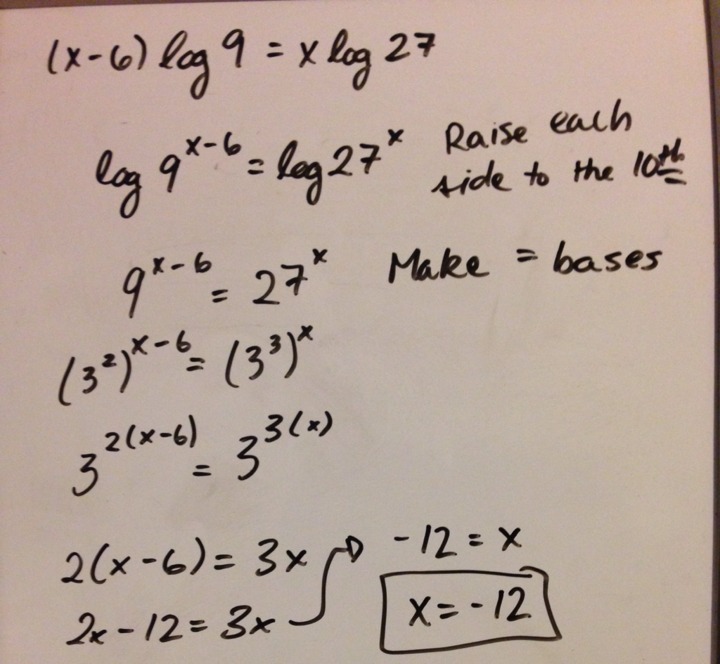 (x-6) log 9 = x log 27
log 9^{x-6} = log 27^x Raise each
side to the 10th
9^{x-6} = 27^x Make = bases
(3^2)^{x-6} = (3^3)^x
3^{2(x-6)} = 3^{3(x)}
2(x-6) = 3x
2x-12 = 3x
-12 = x
x = -12